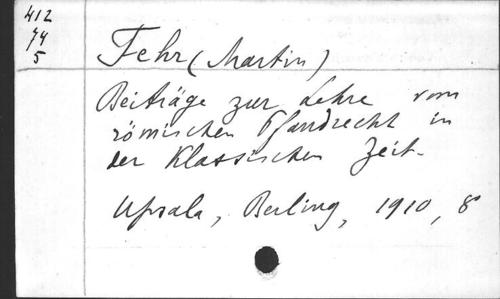 412
74
5
Fehr (Martin)
Beiträge zur Lehre vom
römischen Pfandrecht in
der Klassischen Zeit.
Upsala, Berling, 1910, 8°